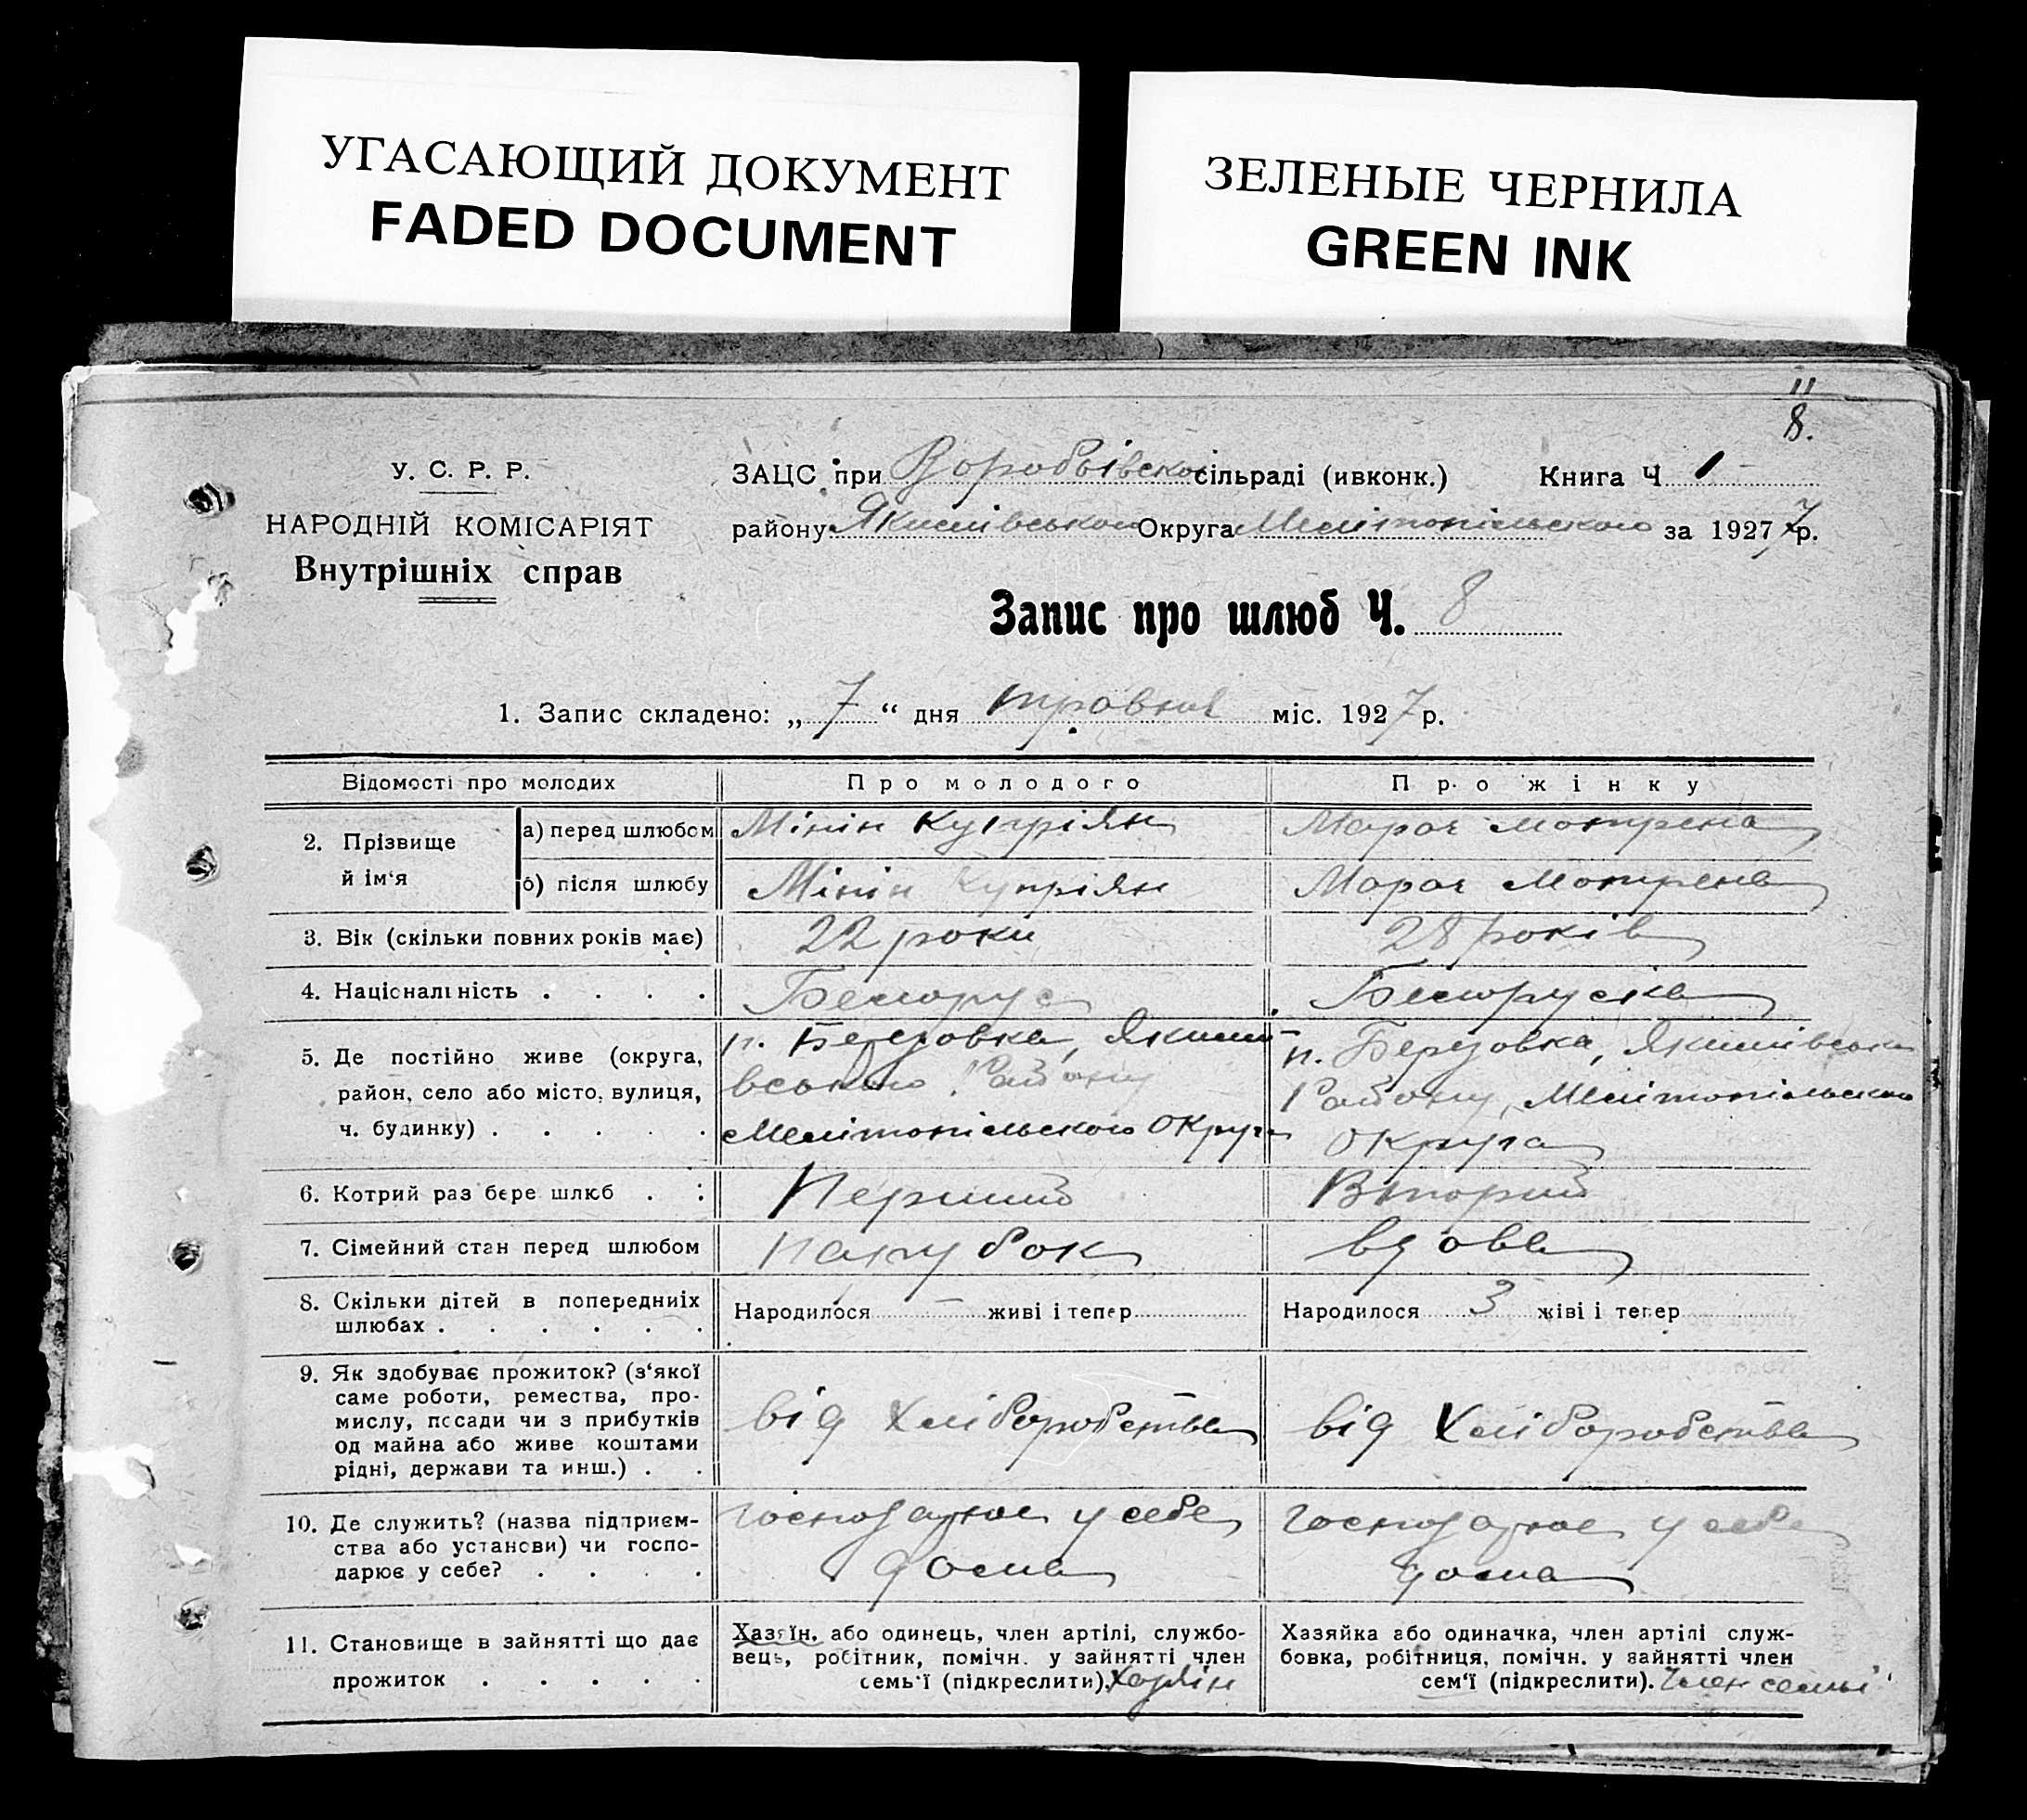 УГАСАЮЩИЙ ДОКУМЕНТ
FADED DOCUMENT
ЗЕЛЕНЫЕ ЧЕРНИЛА
GREEN INK
11
8.
У. С. Р. Р.
НАРОДНІЙ КОМІСАРІЯТ
Внутрішніх справ
ЗАЦС при Воробьівской сільраді (ивконк.) Книга Ч 1
району Якимівського Округа Мелітопільського за 1927 7 р.
Запис про шлюб Ч. 8
1. Запис складено: „ 7 “ дня травня міс. 1927 р.
Відомості про молодих
Про молодого
Про жінку
2. Прізвище й ім‘я
а) перед шлюбом
Мінін Купріян
Марач Мотрена
б) після шлюбу
Мінін Купріян
Марач Мотрена
3. Вік (скільки повних років має)
22 роки
28 років
4. Національність . . . .
Белорус
Белоруска
5. Де постійно живе (округа,
район, село або місто, вулиця,
ч. будинку) . . . . .
п. Березовка, Якимі-
вського Району
Мелітопільського Округа
п. Березовка, Якимівська
Району, Мелітопільського
Округа
6. Котрий раз бере шлюб . .
Перший
Вторий
7. Сімейний стан перед шлюбом
парубок
вдова
8. Скільки дітей в попередниіх
шлюбах . . . . . .
Народилося — живі і тепер
Народилося 3 жіві і тепер
9. Як здобуває прожиток? (з‘якої
саме роботи, ремества, про-
мислу, посади чи з прибутків
од майна або живе коштами
рідні, держави та инш.) . .
від Хліборобства
від Хліборобства
10. Де служить? (назва підприєм-
ства або установи) чи госпо-
дарює у себе? . . . .
господарює у себе
дома
господарює у себе
дома
11. Становище в зайнятті що дає
прожиток . . . . .
Хазяїн, або одинець, член артілі, службо-
вець, робітник, помічн. у зайнятті член
семь‘ї (підкреслити). Хазяін
Хазяйка або одиначка, член артілі служ-
бовка, робітниця, помічн. у зайнятті член
сем‘ї (підкреслити). Член семьі